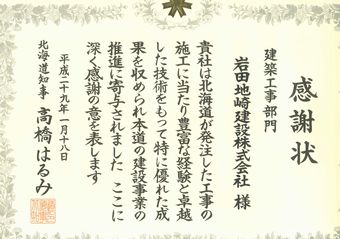 感謝状
建築工事部門
岩田地崎建設株式会社 様
貴社は北海道が発注した工事の
施工に当たり豊富な経験と卓越
した技術をもって特に優れた成
果を収められ本道の建設事業の
推進に寄与されました ここに
深く感謝の意を表します
平成二十九年一月十八日
北海道知事 高橋はるみ